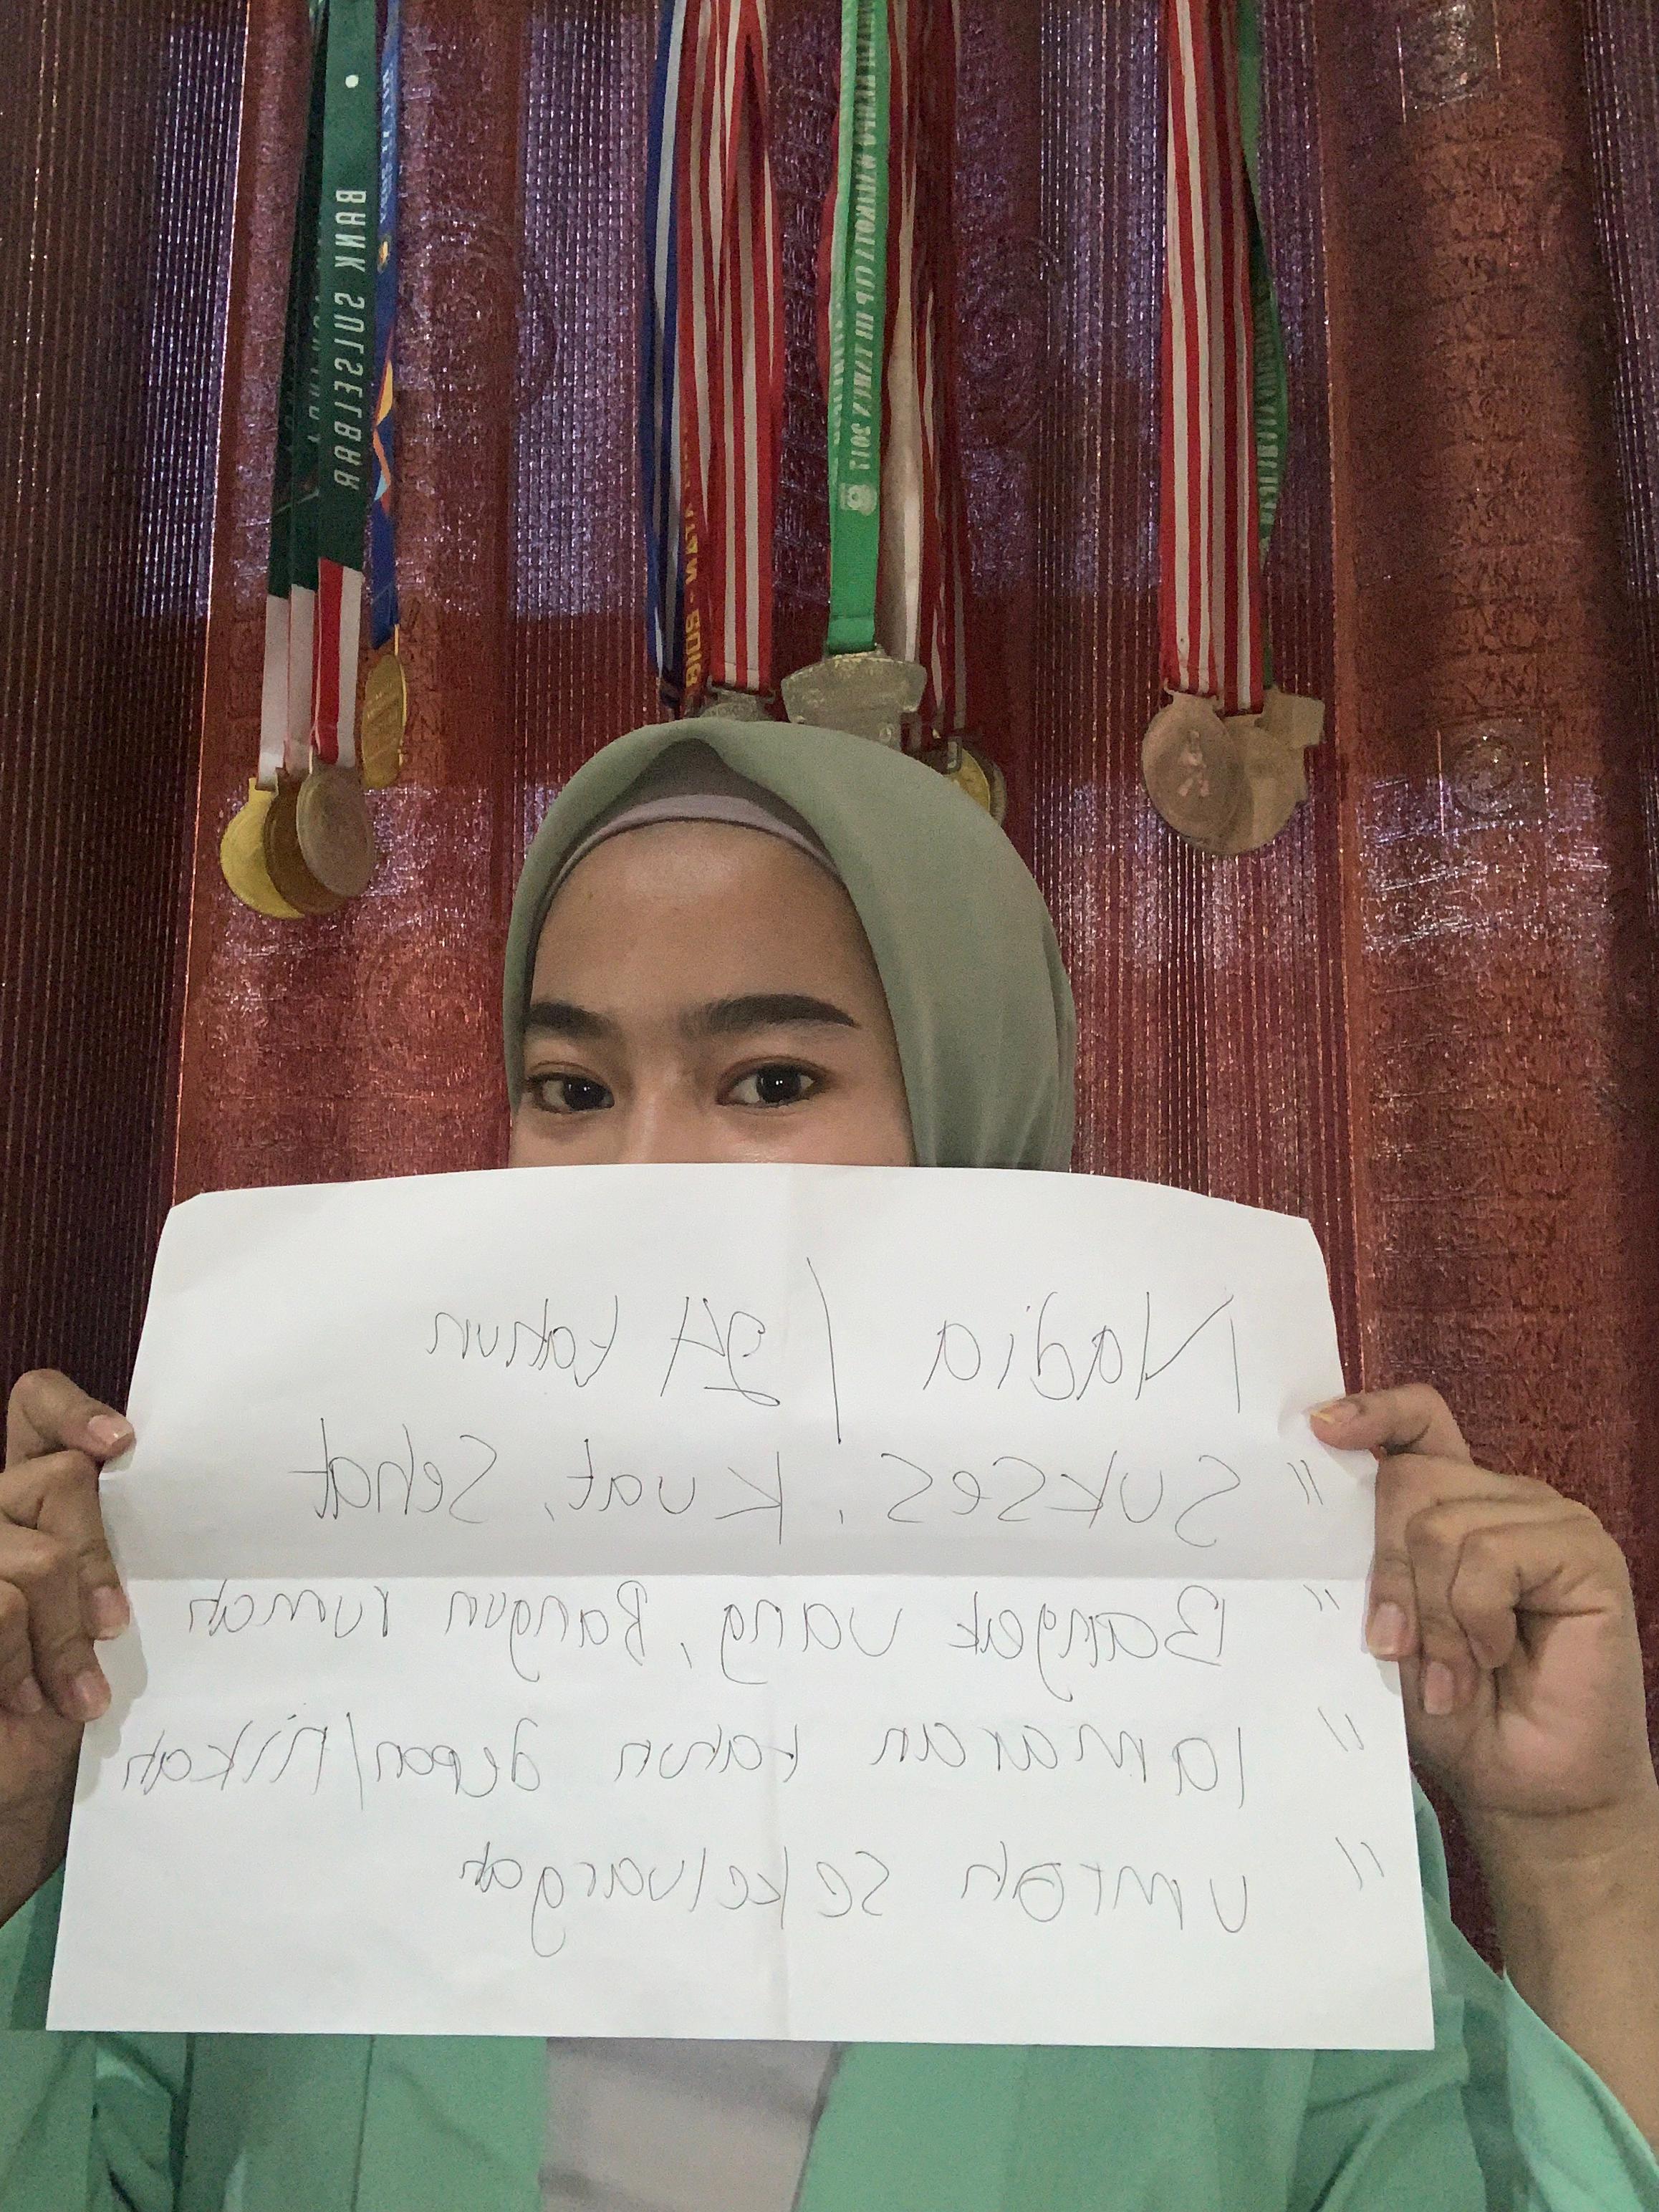 BANK SULSELBAR
WALIKOTA CUP III TAHUN 2017
Nadia / 24 tahun
" Sukses, Kuat, Sehat
" Banyak uang, Bangun rumah
" lamaran tahun depan/Nikah
" umroh sekeluargah